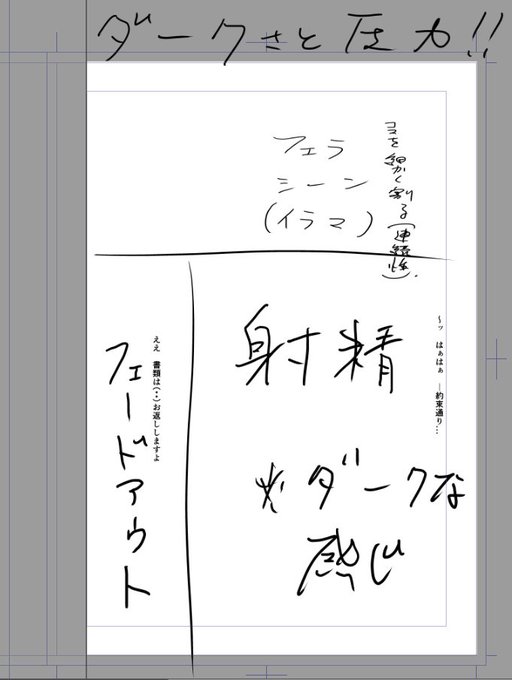 ダークさと圧力!!
コマを細かく割る(連続性)。
フェラ
シーン
(イラマ)
〜ッ はぁはぁ ―約束通り…
射精
※ダークな
感じ
ええ 書類は(・・)お返ししますよ
フェードアウト